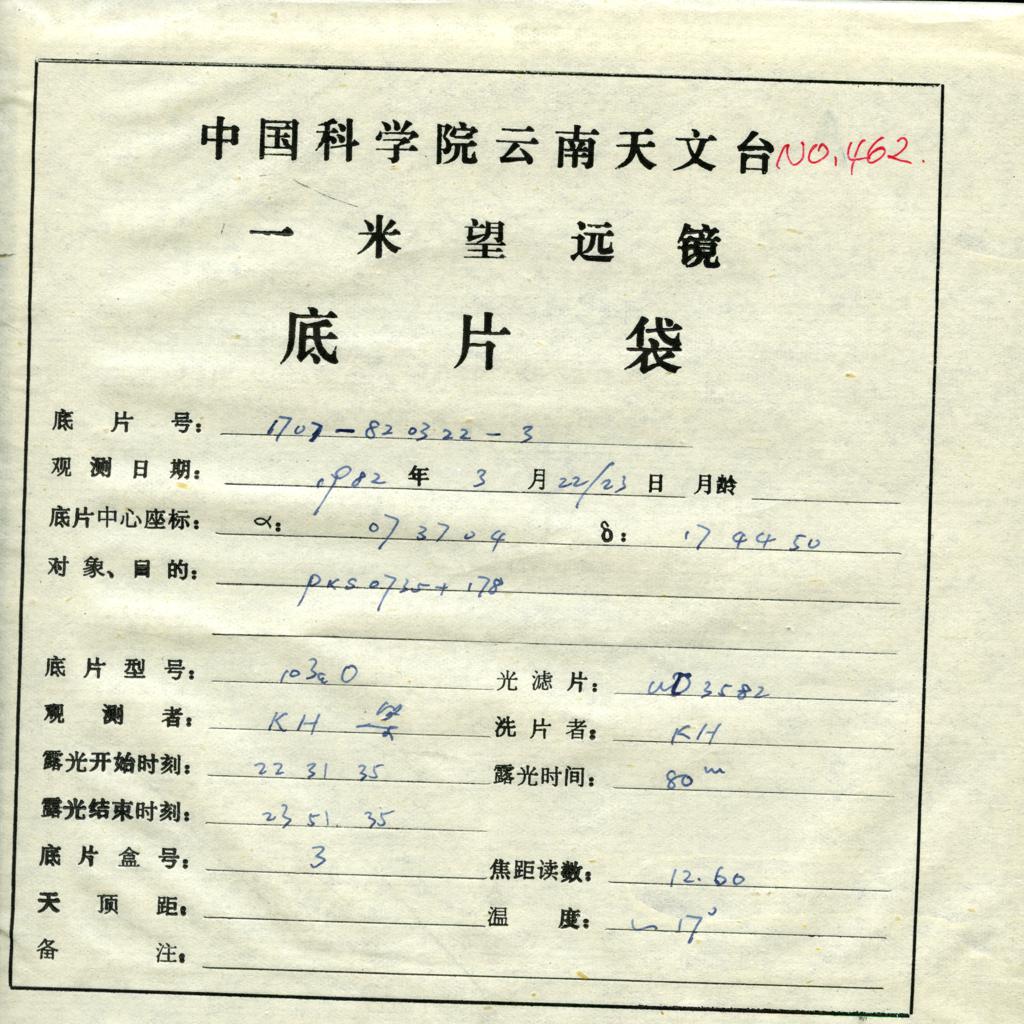 中国科学院云南天文台 NO.462.
一米望远镜
底片袋
底片号: 1707-820322-3
观测日期: 1982 年 3 月 22/23 日 月龄
底片中心座标: α: 07 37 04 δ: 17 44 50
对象、目的: PKS 0735+178
底片型号: 103a O 光滤片: 3582
观测者: KH 洗片者: KH
露光开始时刻: 22 31 35 露光时间: 80m
露光结束时刻: 23 51 35
底片盒号: 3 焦距读数: 12.60
天顶距: 温度: 17°
备注: